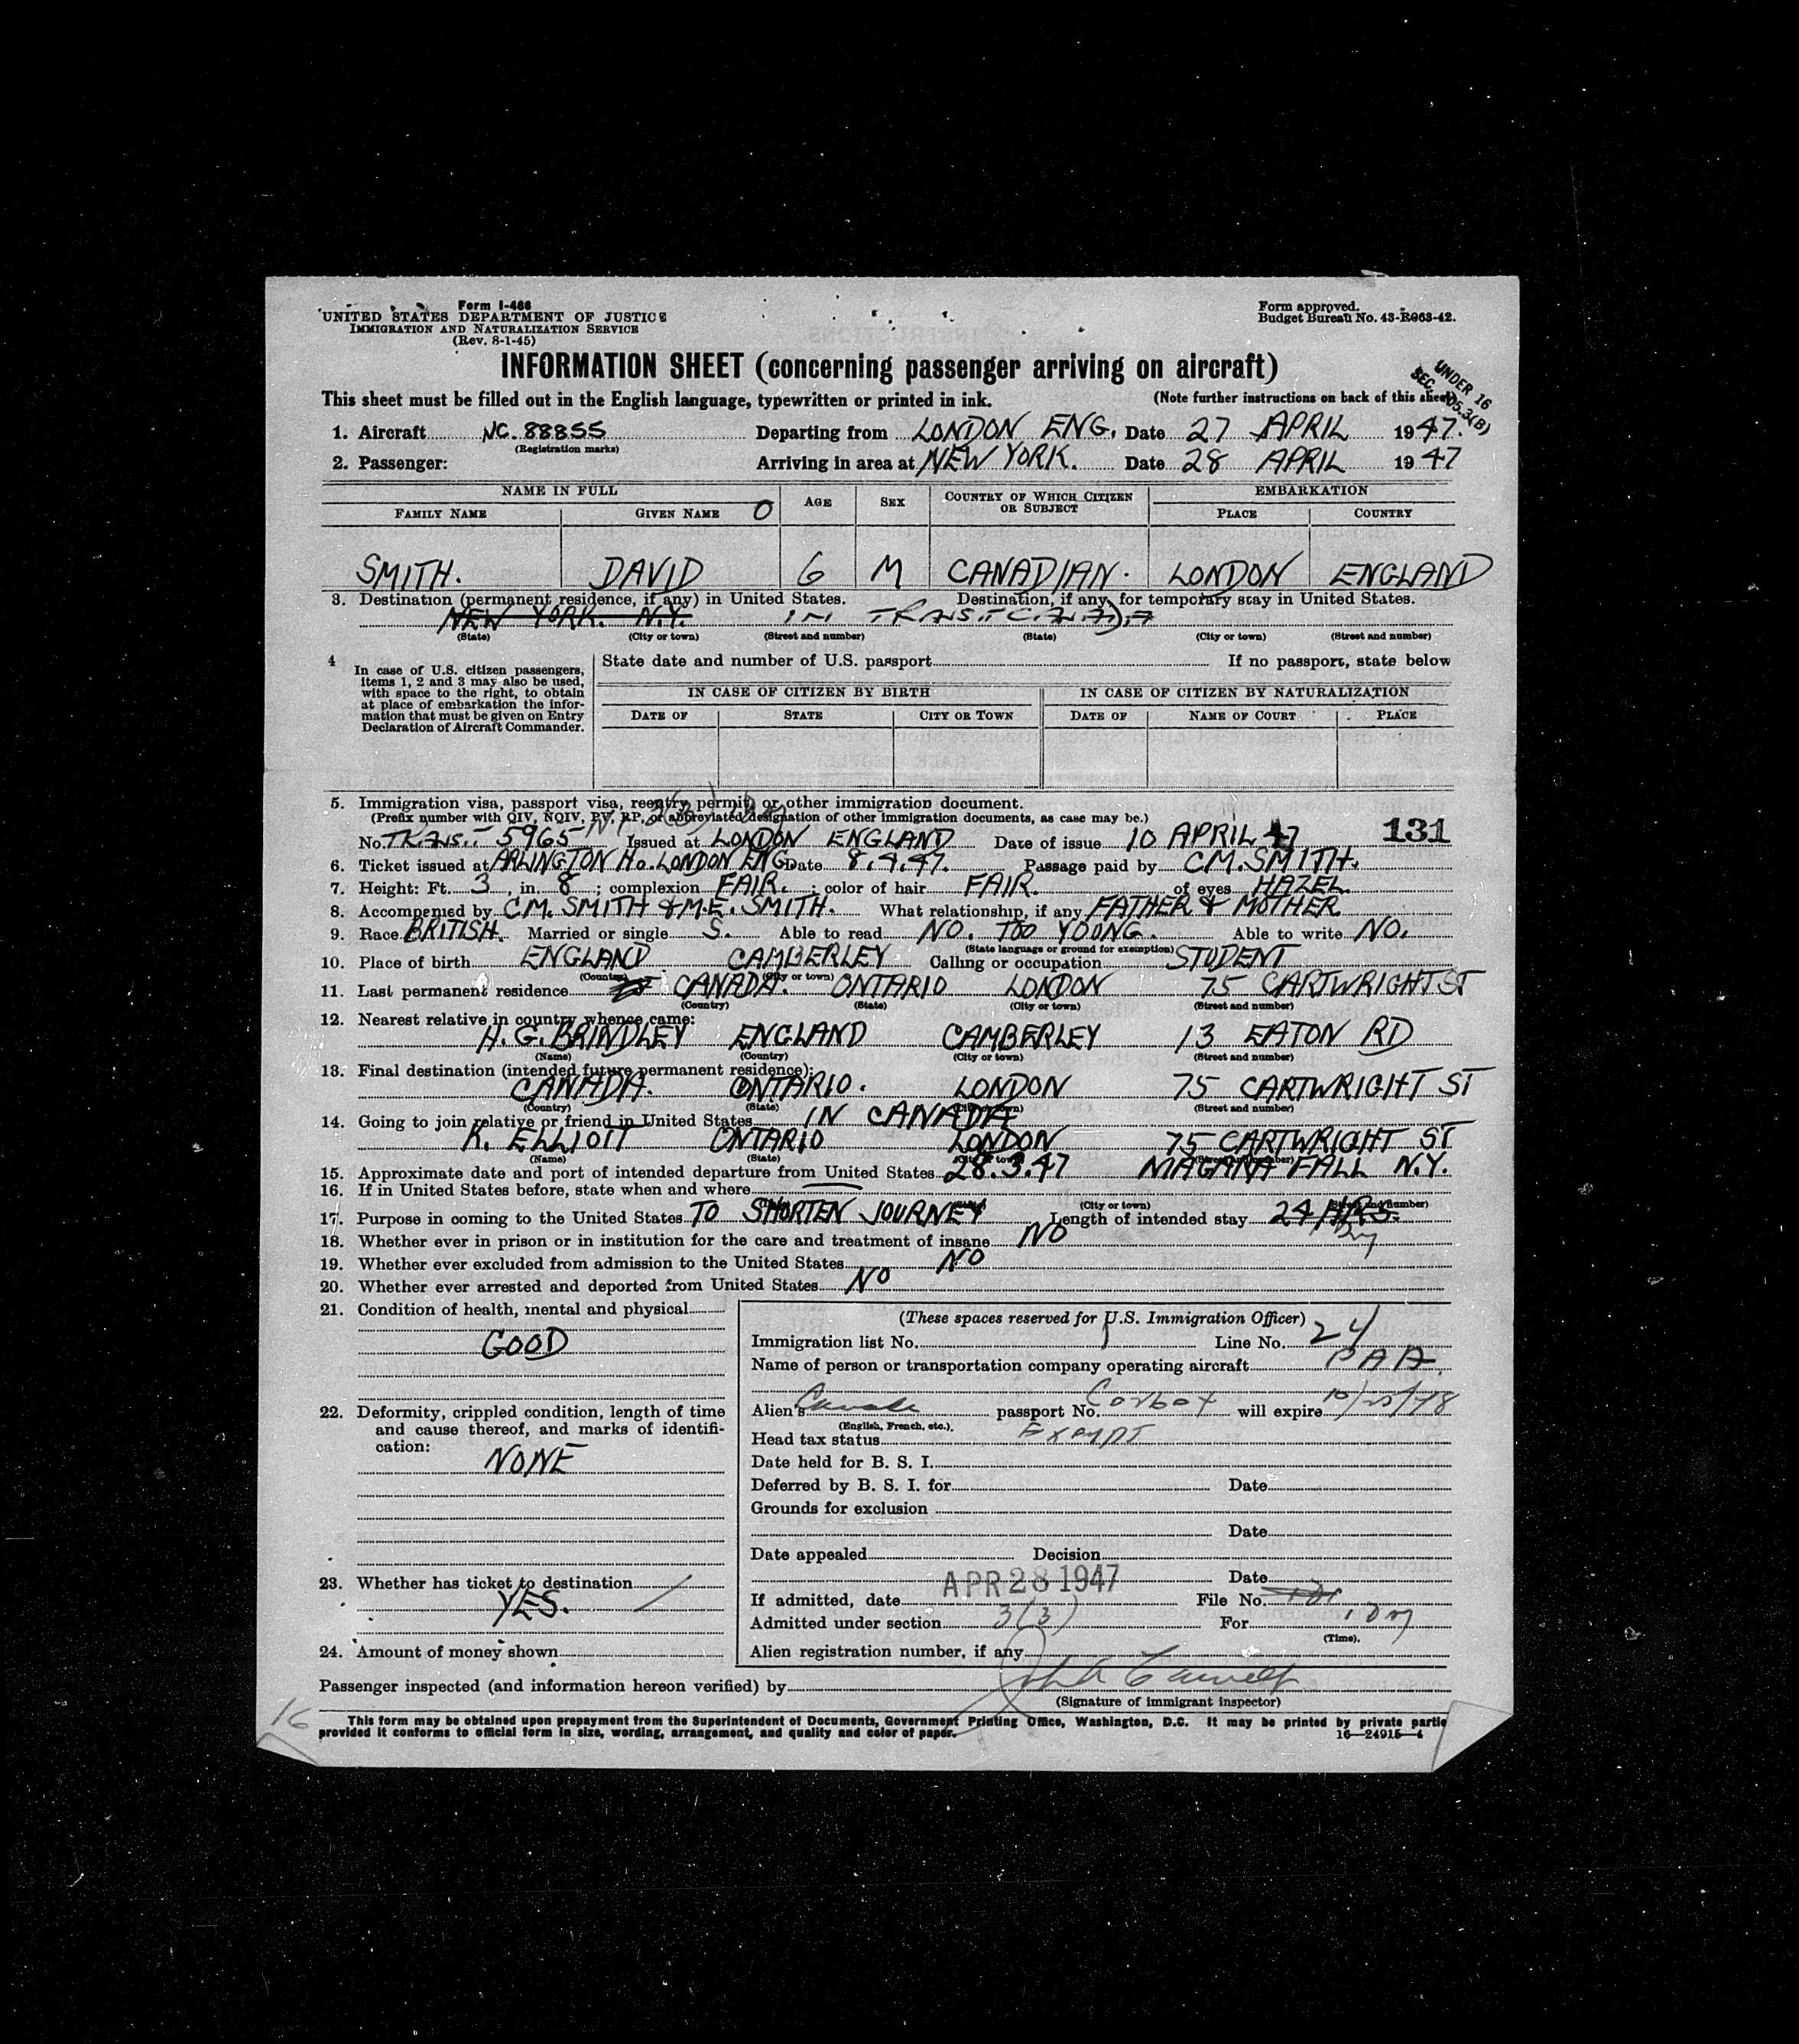 Form I-466
UNITED STATES DEPARTMENT OF JUSTICE
IMMIGRATION AND NATURALIZATION SERVICE
(Rev. 8-1-45)
Form approved.
Budget Bureau No. 43-R063-42.
INFORMATION SHEET (concerning passenger arriving on aircraft)
UNDER 16
SEC. 105.3(B)
This sheet must be filled out in the English language, typewritten or printed in ink. (Note further instructions on back of this sheet)
1. Aircraft NC. 88855 Departing from LONDON ENG. Date 27 APRIL 1947.
(Registration marks)
2. Passenger: Arriving in area at NEW YORK. Date 28 APRIL 1947
NAME IN FULL AGE SEX COUNTRY OF WHICH CITIZEN OR SUBJECT EMBARKATION
FAMILY NAME GIVEN NAME O PLACE COUNTRY
SMITH. DAVID 6 M CANADIAN. LONDON ENGLAND
3. Destination (permanent residence, if any) in United States. Destination, if any, for temporary stay in United States.
NEW YORK. N.Y. IN TRANSIT CANADA
(State) (City or town) (Street and number) (State) (City or town) (Street and number)
4 In case of U.S. citizen passengers, items 1, 2 and 3 may also be used, with space to the right, to obtain at place of embarkation the information that must be given on Entry Declaration of Aircraft Commander.
State date and number of U.S. passport If no passport, state below
IN CASE OF CITIZEN BY BIRTH IN CASE OF CITIZEN BY NATURALIZATION
DATE OF STATE CITY OR TOWN DATE OF NAME OF COURT PLACE
5. Immigration visa, passport visa, reentry permit, or other immigration document.
(Prefix number with QIV, NQIV, PV, RP, or abbreviated designation of other immigration documents, as case may be.)
No. TRANS.- 5965 Issued at LONDON ENGLAND Date of issue 10 APRIL 47 131
6. Ticket issued at ARLINGTON Ho. LONDON ENG Date 8.4.47. Passage paid by C.M. SMITH.
7. Height: Ft. 3, in. 8; complexion FAIR.; color of hair FAIR. of eyes HAZEL.
8. Accompanied by C.M. SMITH & M.E. SMITH. What relationship, if any FATHER & MOTHER
9. Race BRITISH. Married or single S. Able to read NO. TOO YOUNG. Able to write NO.
(State language or ground for exemption)
10. Place of birth ENGLAND CAMBERLEY Calling or occupation STUDENT
(Country) (City or town)
11. Last permanent residence CANADA. ONTARIO LONDON 75 CARTWRIGHT ST
(Country) (State) (City or town) (Street and number)
12. Nearest relative in country whence came:
H. G. BRINDLEY ENGLAND CAMBERLEY 13 EATON RD
(Name) (Country) (City or town) (Street and number)
13. Final destination (intended future permanent residence):
CANADA. ONTARIO. LONDON 75 CARTWRIGHT ST
(Country) (State) (City or town) (Street and number)
14. Going to join relative or friend in United States IN CANADA
K. ELLIOTT ONTARIO LONDON 75 CARTWRIGHT ST
(Name) (State) (City or town) (Street and number)
15. Approximate date and port of intended departure from United States 28.3.47 NIAGANA FALL N.Y.
16. If in United States before, state when and where
(City or town) (Street and number)
17. Purpose in coming to the United States TO SHORTEN JOURNEY Length of intended stay 24 HRS.
18. Whether ever in prison or in institution for the care and treatment of insane NO
19. Whether ever excluded from admission to the United States NO
20. Whether ever arrested and deported from United States NO
21. Condition of health, mental and physical
GOOD
22. Deformity, crippled condition, length of time and cause thereof, and marks of identification:
NONE
23. Whether has ticket to destination
YES.
24. Amount of money shown
(These spaces reserved for U.S. Immigration Officer)
Immigration list No. Line No. 24
Name of person or transportation company operating aircraft PAA
Alien's passport No. will expire
(English, French, etc.)
Head tax status Exempt
Date held for B. S. I.
Deferred by B. S. I. for Date
Grounds for exclusion
Date
Date appealed Decision
Date
If admitted, date APR 28 1947 File No.
Admitted under section 3(3) For
(Time).
Alien registration number, if any
Passenger inspected (and information hereon verified) by
(Signature of immigrant inspector)
16
This form may be obtained upon prepayment from the Superintendent of Documents, Government Printing Office, Washington, D.C. It may be printed by private partie
provided it conforms to official form in size, wording, arrangement, and quality and color of paper. 16—24915-4